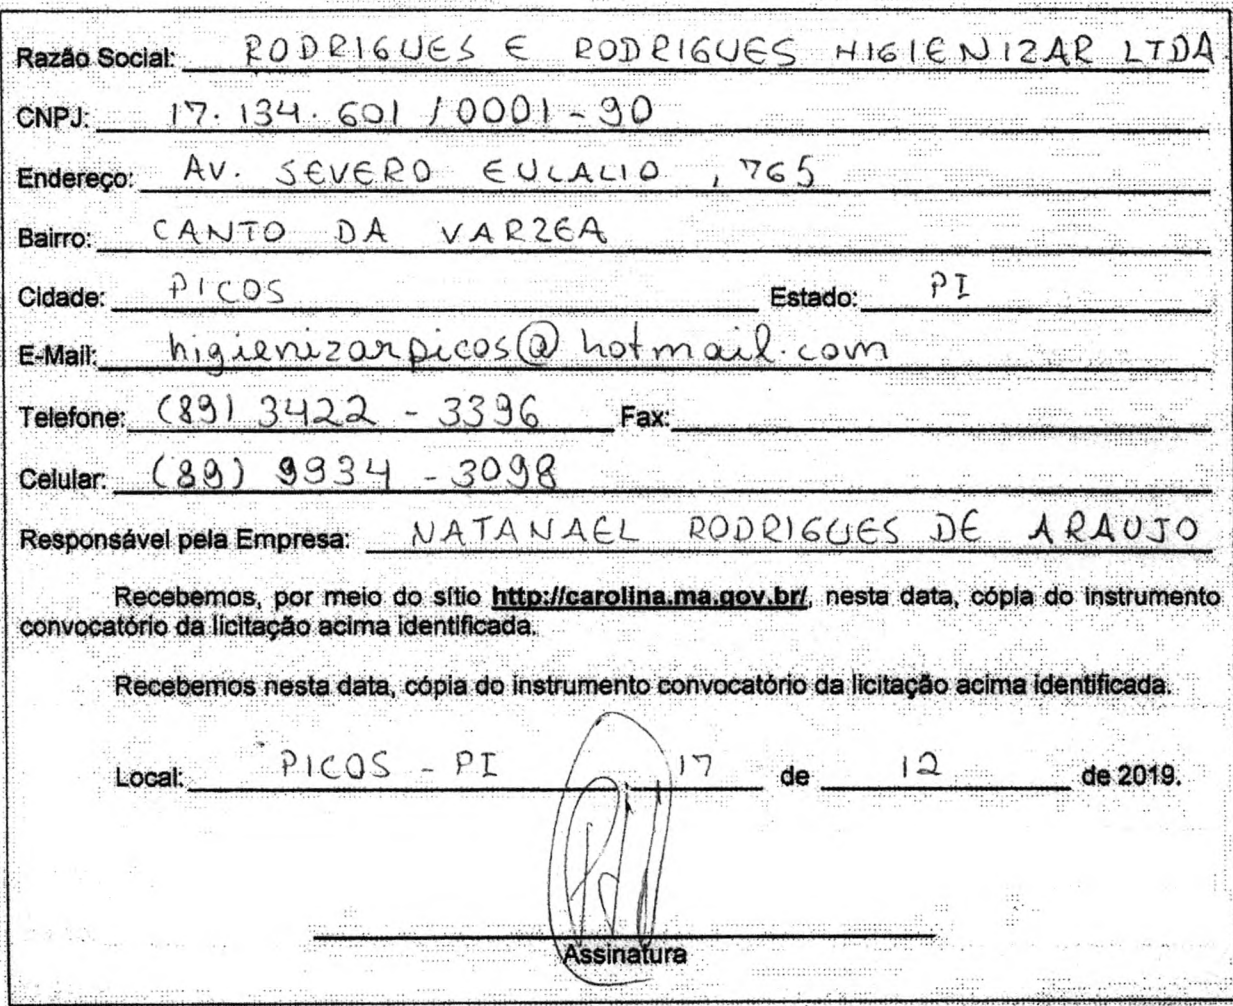 Razão Social: RODRIGUES E RODRIGUES HIGIENIZAR LTDA
CNPJ: 17.134.601 / 0001 - 90
Endereço: AV. SEVERO EULALIO , 765
Bairro: CANTO DA VARZEA
Cidade: PICOS Estado: PI
E-Mail: higienizarpicos@hotmail.com
Telefone: (89) 3422 - 3396 Fax:
Celular: (89) 9934 - 3098
Responsável pela Empresa: NATANAEL RODRIGUES DE ARAUJO
Recebemos, por meio do sítio http://carolina.ma.gov.br/, nesta data, cópia do instrumento
convocatório da licitação acima identificada.
Recebemos nesta data, cópia do instrumento convocatório da licitação acima identificada.
Local: PICOS - PI 17 de 12 de 2019.
Assinatura